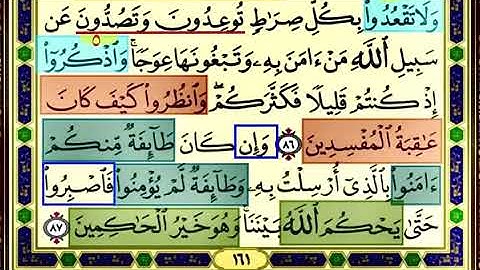 وَلَا تَقْعُدُوا۟ بِكُلِّ صِرَٰطٍ تُوعِدُونَ وَتَصُدُّونَ عَن
سَبِيلِ ٱللَّهِ مَنْ ءَامَنَ بِهِۦ وَتَبْغُونَهَا عِوَجًا ۚ وَٱذْكُرُوٓا۟
إِذْ كُنتُمْ قَلِيلًا فَكَثَّرَكُمْ ۖ وَٱنظُرُوا۟ كَيْفَ كَانَ
عَٰقِبَةُ ٱلْمُفْسِدِينَ ٨٦ وَإِن كَانَ طَآئِفَةٌ مِّنكُمْ
ءَامَنُوا۟ بِٱلَّذِىٓ أُرْسِلْتُ بِهِۦ وَطَآئِفَةٌ لَّمْ يُؤْمِنُوا۟ فَٱصْبِرُوا۟
حَتَّىٰ يَحْكُمَ ٱللَّهُ بَيْنَنَا ۚ وَهُوَ خَيْرُ ٱلْحَٰكِمِينَ ٨٧
١٦١